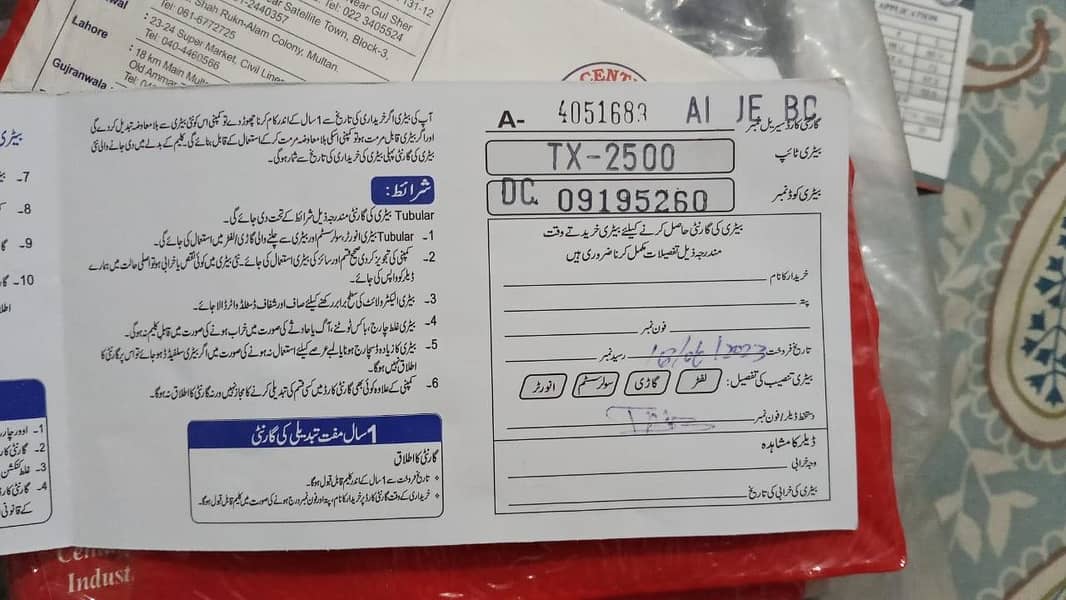 Lahore
Gujranwala
Shah Rukn-Alam Colony, Multan.
Tel: 061-6772725
: 23-24 Super Market, Civil Lines
Tel: 040-4460566
: 18 km Main Multan
Old Ammar
Tel: 022 3405524
Near Gul Sher
Satellite Town, Block-3,
CENT
آپ کی بیٹری اگر خریداری کی تاریخ سے 1 سال کے اندر کام کرنا چھوڑ دے تو کمپنی اس کو نئی بیٹری سے بلا معاوضہ تبدیل کر دے گی
اور اگر بیٹری قابل مرمت ہو تو کمپنی اسکی بلا معاوضہ مرمت کر کے استعمال کے قابل بنائے گی۔ کلیم کے بدلے میں دی جانے والی نئی
بیٹری کی گارنٹی پہلی بیٹری کی خریداری کی تاریخ سے شمار ہوگی۔
شرائط:
Tubular بیٹری کی گارنٹی مندرجہ ذیل شرائط کے تحت دی جائے گی۔
1۔ Tubular بیٹری انورٹر، سولر سسٹم اور بیٹری سے چلنے والی گاڑی / لفٹر میں استعمال کی جائے گی۔
2۔ کمپنی کی تجویز کردہ صحیح قسم اور سائز کی بیٹری استعمال کی جائے۔ نئی بیٹری میں کوئی نقص یا خرابی ہو تو اصلی حالت میں ہمارے
ڈیلر کو واپس کی جائے۔
3۔ بیٹری الیکٹرولائٹ کی سطح برابر رکھنے کیلئے صاف اور شفاف ڈسٹلڈ واٹر ڈالا جائے۔
4۔ بیٹری غلط چارج، باکس ٹوٹنے، آگ یا حادثے کی صورت میں خراب ہونے کی صورت میں قابل کلیم نہ ہوگی۔
5۔ بیٹری کا زیادہ ڈسچارج ہونا یا لمبے عرصے کیلئے استعمال نہ ہونے کی صورت میں اگر بیٹری سلفیٹڈ ہو جائے تو اس پر گارنٹی کا
اطلاق نہیں ہوگا۔
6۔ کمپنی کے علاوہ کوئی بھی گارنٹی کارڈ میں کسی قسم کی تبدیلی کرنے کا مجاز نہیں ورنہ گارنٹی کا اطلاق نہ ہوگا۔
1 سال مفت تبدیلی کی گارنٹی
گارنٹی کا اطلاق
تاریخ فروخت سے 1 سال کے اندر کلیم قابل قبول ہوگا۔
خریداری کے وقت گارنٹی کارڈ پر خریدار کا نام، پتہ اور فون نمبر درج ہونے کی صورت میں کلیم قابل قبول ہوگا۔
A- 4051683 AI JE BC
گارنٹی کارڈ سیریل نمبر
TX-2500
بیٹری ٹائپ
DC 09195260
بیٹری کوڈ نمبر
بیٹری کی گارنٹی حاصل کرنے کیلئے بیٹری خریدتے وقت
مندرجہ ذیل تفصیلات مکمل کرنا ضروری ہیں
خریدار کا نام
پتہ
فون نمبر
تاریخ فروخت رسید نمبر
بیٹری تنصیب کی تفصیل: لفٹر گاڑی سولر سسٹم انورٹر
دستخط ڈیلر / فون نمبر
ڈیلر کا مشاہدہ
وجہ خرابی
بیٹری کی خرابی کی تاریخ
7۔
8۔
9۔
10۔
Indust